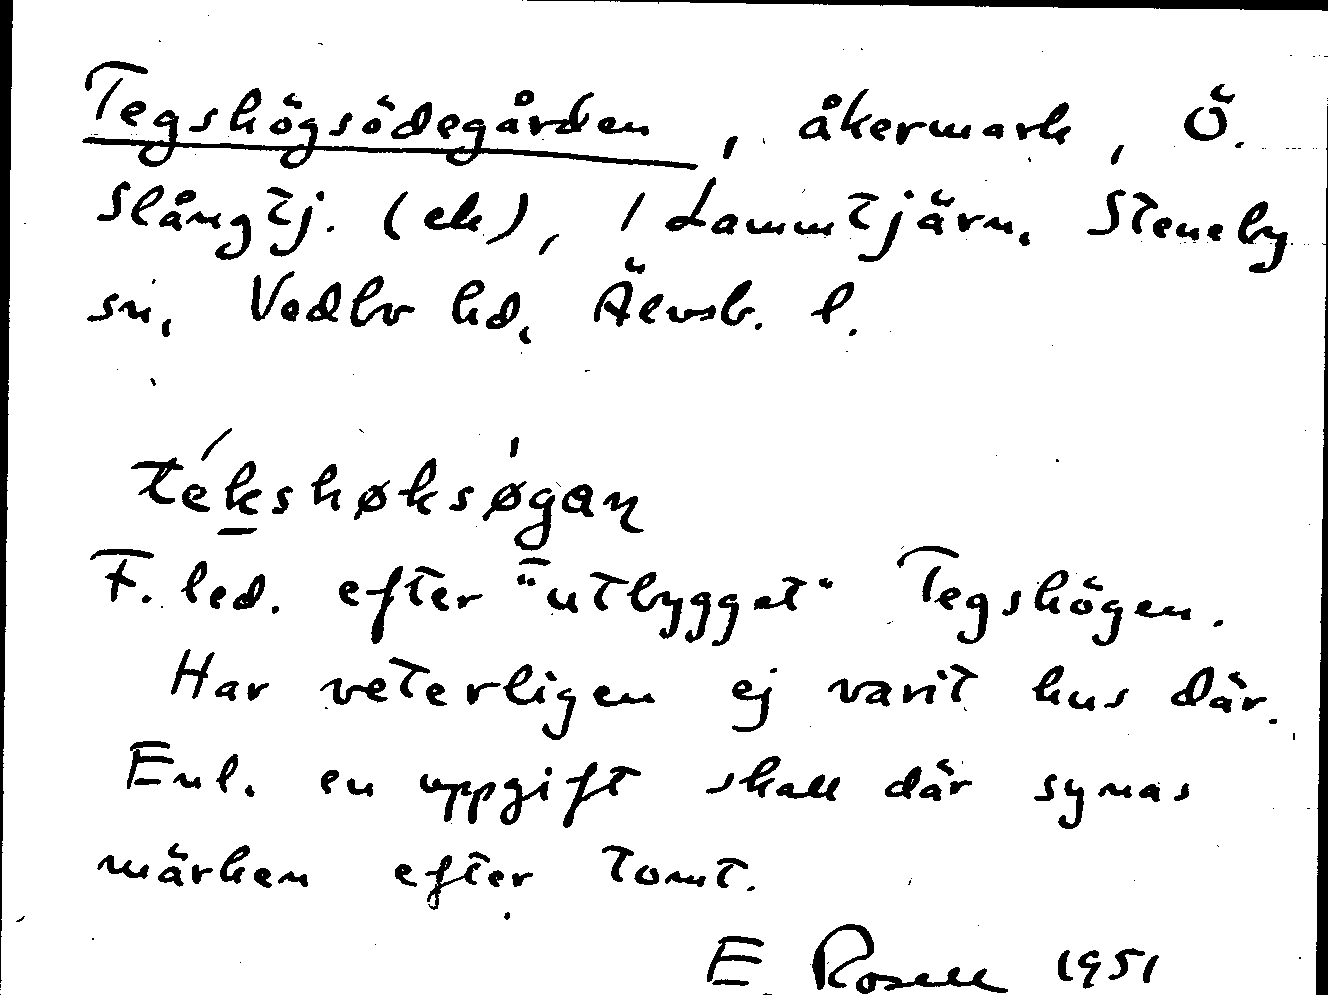 Tegshögsödegården, åkermark, Ö.
Slångtj. (ek), 1 Lammtjärn, Steneby
sn, Vedbo hd, Älvsb. l.
tékshøksø̍gan
F. led. efter "utbygget" Tegshögen.
Har veterligen ej varit hus där.
Enl. en uppgift skall där synas
märken efter tomt.
E. Rosell 1951